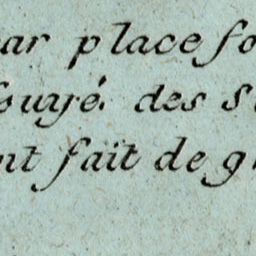 ar place fo
suyé. des S
nt fait de g